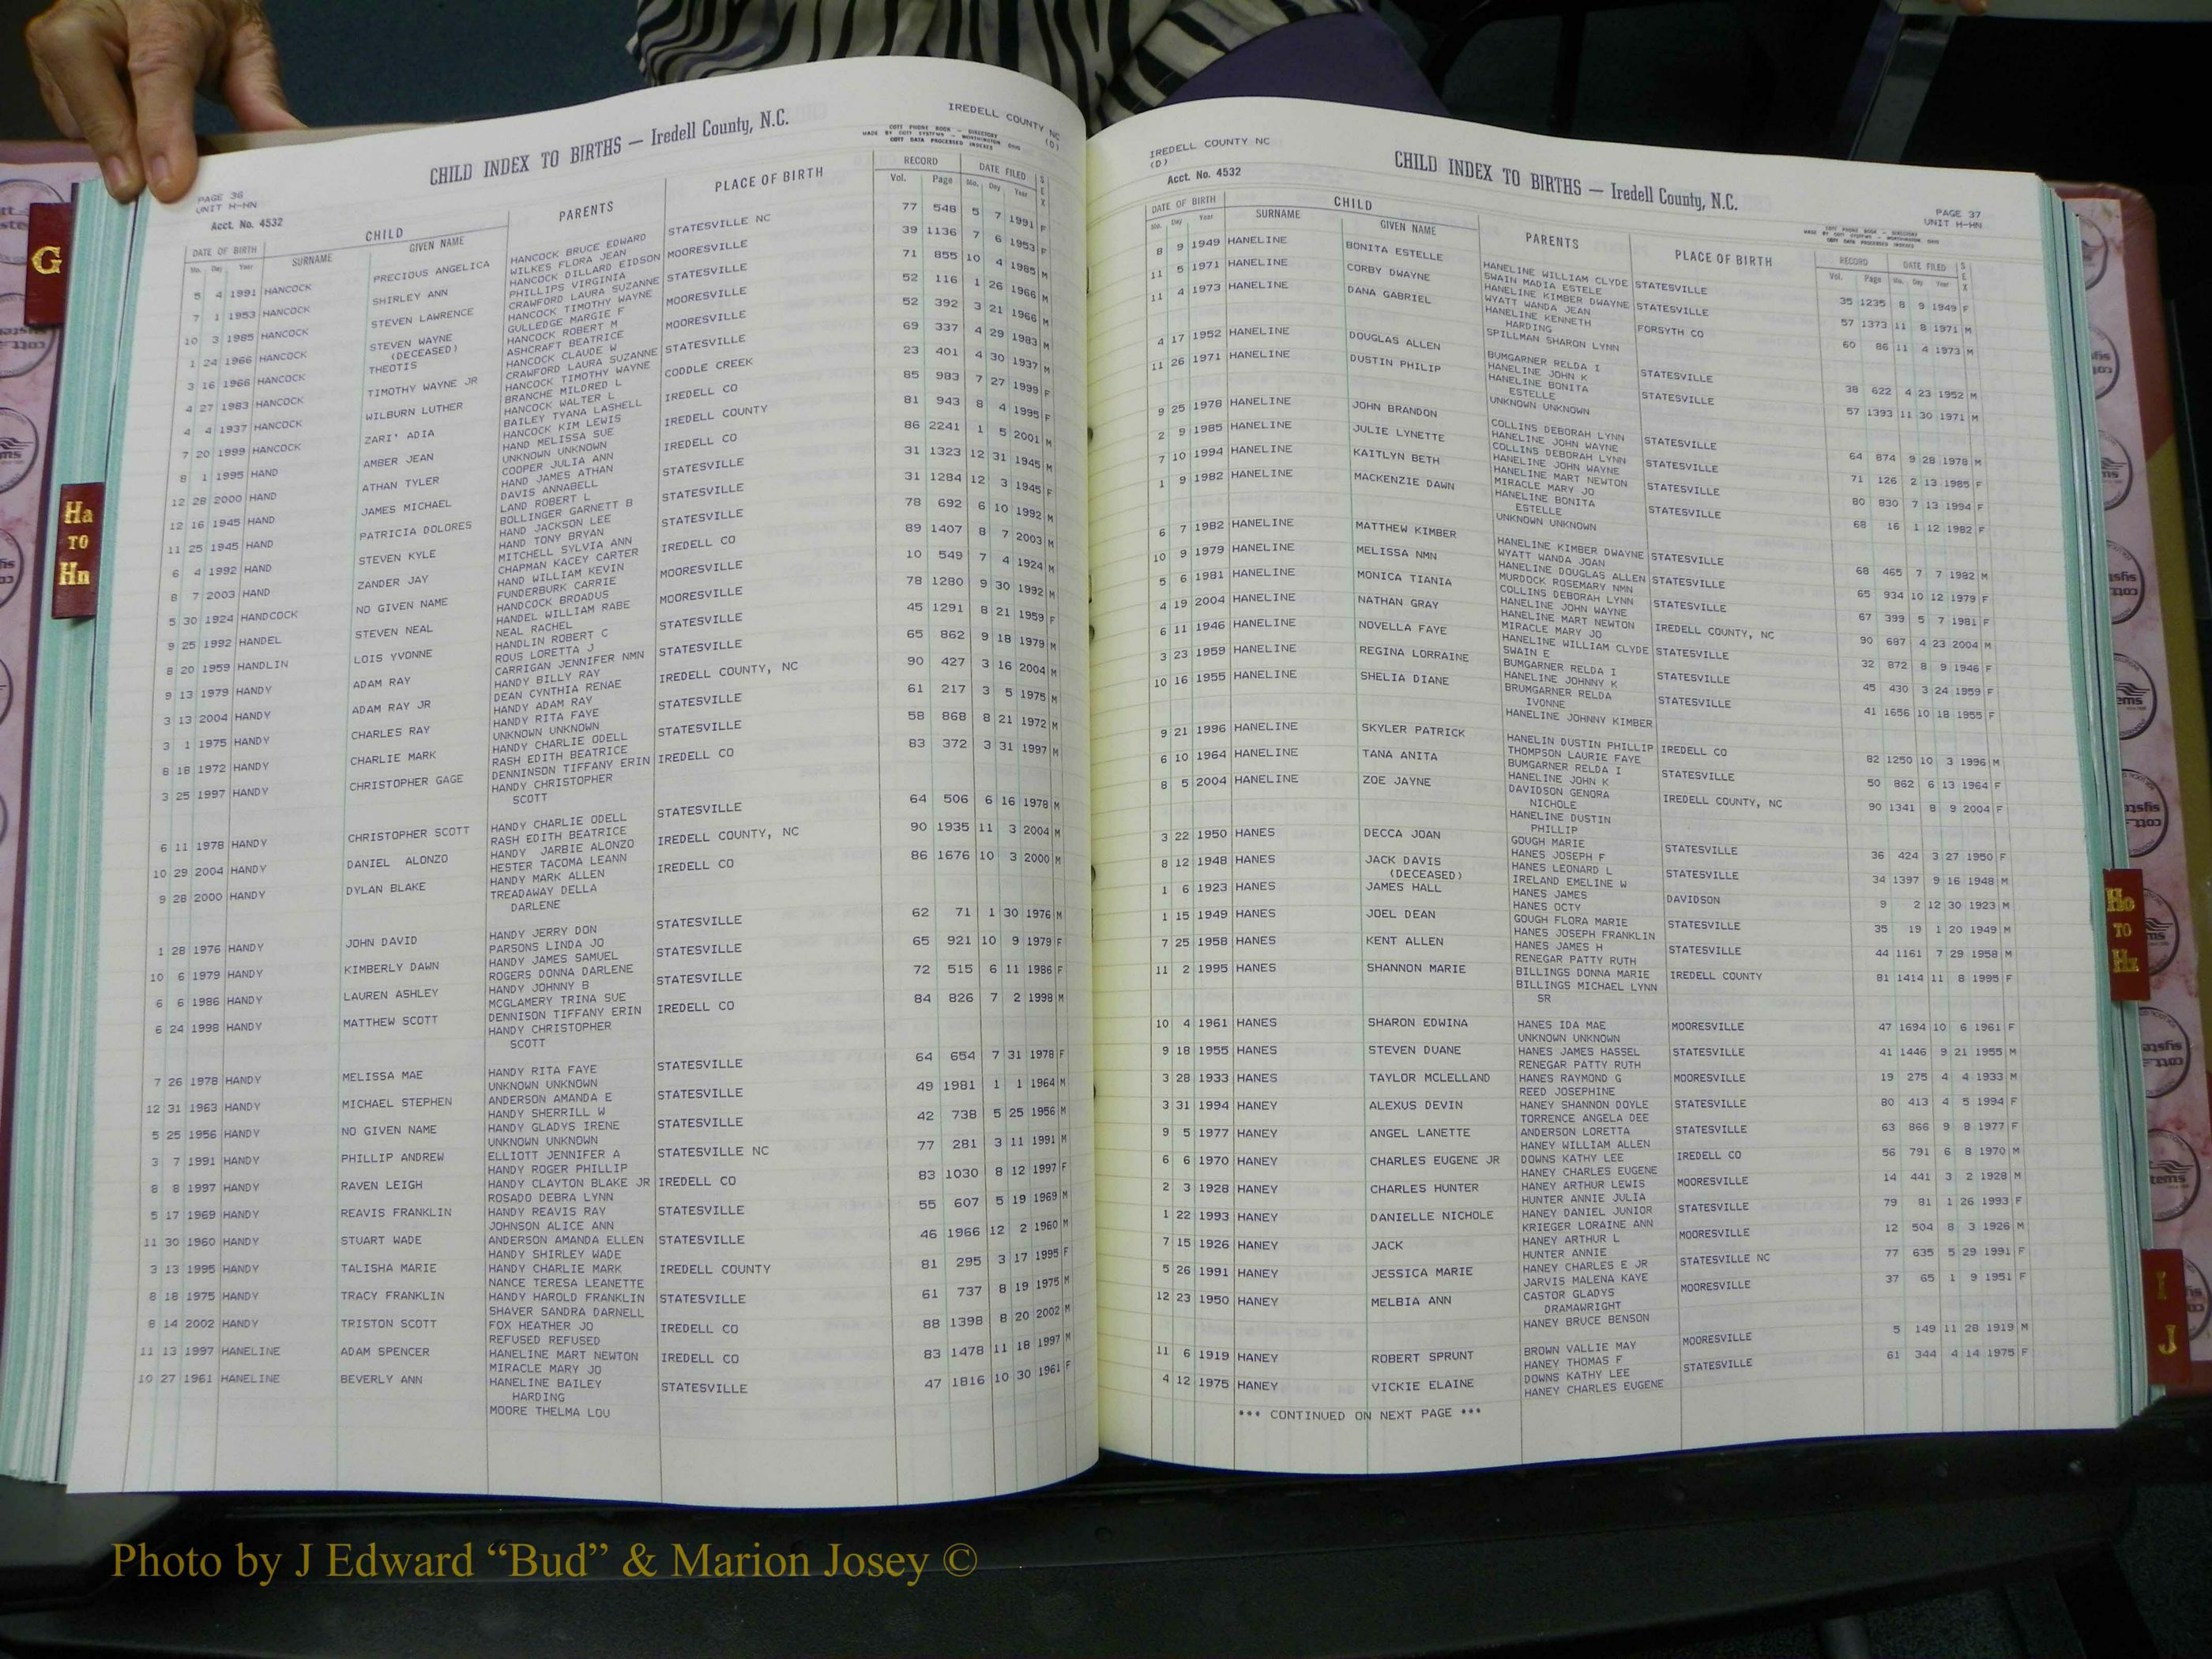 IREDELL COUNTY NC
(D)
CHILD INDEX TO BIRTHS — Iredell County, N.C.
COTT PHONE BOOK — DIRECTORY
MADE BY COTT SYSTEMS — WORTHINGTON OHIO
COTT DATA PROCESSED INDEXES
PAGE 36
UNIT H-HN
Acct. No. 4532
DATE OF BIRTH CHILD PARENTS PLACE OF BIRTH RECORD DATE FILED SEX
Mo. Day Year SURNAME GIVEN NAME Vol. Page Mo. Day Year
5 4 1991 HANCOCK PRECIOUS ANGELICA HANCOCK BRUCE EDWARD STATESVILLE NC 77 548 5 7 1991 F
WILKES FLORA JEAN
7 1 1953 HANCOCK SHIRLEY ANN HANCOCK DILLARD EIDSON MOORESVILLE 39 1136 7 6 1953 F
PHILLIPS VIRGINIA
10 3 1985 HANCOCK STEVEN LAWRENCE CRAWFORD LAURA SUZANNE STATESVILLE 71 855 10 4 1985 M
HANCOCK TIMOTHY WAYNE
1 24 1966 HANCOCK STEVEN WAYNE GULLEDGE MARGIE F MOORESVILLE 52 116 1 26 1966 M
(DECEASED) HANCOCK ROBERT M
3 16 1966 HANCOCK THEOTIS ASHCRAFT BEATRICE MOORESVILLE 52 392 3 21 1966 M
HANCOCK CLAUDE W
4 27 1983 HANCOCK TIMOTHY WAYNE JR CRAWFORD LAURA SUZANNE STATESVILLE 69 337 4 29 1983 M
HANCOCK TIMOTHY WAYNE
4 4 1937 HANCOCK WILBURN LUTHER BRANCHE MILDRED L CODDLE CREEK 23 401 4 30 1937 M
HANCOCK WALTER L
7 20 1999 HANCOCK ZARI' ADIA BAILEY TYANA LASHELL IREDELL CO 85 983 7 27 1999 F
HANCOCK KIM LEWIS
8 1 1995 HAND AMBER JEAN HAND MELISSA SUE IREDELL COUNTY 81 943 8 4 1995 F
UNKNOWN UNKNOWN
12 28 2000 HAND ATHAN TYLER COOPER JULIA ANN IREDELL CO 86 2241 1 5 2001 M
HAND JAMES ATHAN
12 16 1945 HAND JAMES MICHAEL DAVIS ANNABELL STATESVILLE 31 1323 12 31 1945 M
LAND ROBERT L
11 25 1945 HAND PATRICIA DOLORES BOLLINGER GARNETT B STATESVILLE 31 1284 12 3 1945 F
HAND JACKSON LEE
6 4 1992 HAND STEVEN KYLE HAND TONY BRYAN STATESVILLE 78 692 6 10 1992 M
MITCHELL SYLVIA ANN
8 7 2003 HAND ZANDER JAY CHAPMAN KACEY CARTER IREDELL CO 89 1407 8 7 2003 M
HAND WILLIAM KEVIN
5 30 1924 HANDCOCK NO GIVEN NAME FUNDERBURK CARRIE MOORESVILLE 10 549 7 4 1924 M
HANDCOCK BROADUS
9 25 1992 HANDEL STEVEN NEAL HANDEL WILLIAM RABE MOORESVILLE 78 1280 9 30 1992 M
NEAL RACHEL
8 20 1959 HANDLIN LOIS YVONNE HANDLIN ROBERT C STATESVILLE 45 1291 8 21 1959 F
ROUS LORETTA J
9 13 1979 HANDY ADAM RAY CARRIGAN JENNIFER NMN STATESVILLE 65 862 9 18 1979 M
HANDY BILLY RAY
3 13 2004 HANDY ADAM RAY JR DEAN CYNTHIA RENAE IREDELL COUNTY, NC 90 427 3 16 2004 M
HANDY ADAM RAY
3 1 1975 HANDY CHARLES RAY HANDY RITA FAYE STATESVILLE 61 217 3 5 1975 M
UNKNOWN UNKNOWN
8 18 1972 HANDY CHARLIE MARK HANDY CHARLIE ODELL STATESVILLE 58 868 8 21 1972 M
RASH EDITH BEATRICE
3 25 1997 HANDY CHRISTOPHER GAGE DENNINSON TIFFANY ERIN IREDELL CO 83 372 3 31 1997 M
HANDY CHRISTOPHER
SCOTT
6 11 1978 HANDY CHRISTOPHER SCOTT HANDY CHARLIE ODELL STATESVILLE 64 506 6 16 1978 M
RASH EDITH BEATRICE
10 29 2004 HANDY DANIEL ALONZO HANDY JARBIE ALONZO IREDELL COUNTY, NC 90 1935 11 3 2004 M
HESTER TACOMA LEANN
9 28 2000 HANDY DYLAN BLAKE HANDY MARK ALLEN IREDELL CO 86 1676 10 3 2000 M
TREADAWAY DELLA
DARLENE
1 28 1976 HANDY JOHN DAVID HANDY JERRY DON STATESVILLE 62 71 1 30 1976 M
PARSONS LINDA JO
10 6 1979 HANDY KIMBERLY DAWN HANDY JAMES SAMUEL STATESVILLE 65 921 10 9 1979 F
ROGERS DONNA DARLENE
6 6 1986 HANDY LAUREN ASHLEY HANDY JOHNNY B STATESVILLE 72 515 6 11 1986 F
MCGLAMERY TRINA SUE
6 24 1998 HANDY MATTHEW SCOTT DENNISON TIFFANY ERIN IREDELL CO 84 826 7 2 1998 M
HANDY CHRISTOPHER
SCOTT
7 26 1978 HANDY MELISSA MAE HANDY RITA FAYE STATESVILLE 64 654 7 31 1978 F
UNKNOWN UNKNOWN
12 31 1963 HANDY MICHAEL STEPHEN ANDERSON AMANDA E STATESVILLE 49 1981 1 1 1964 M
HANDY SHERRILL W
5 25 1956 HANDY NO GIVEN NAME HANDY GLADYS IRENE STATESVILLE 42 738 5 25 1956 M
UNKNOWN UNKNOWN
3 7 1991 HANDY PHILLIP ANDREW ELLIOTT JENNIFER A STATESVILLE NC 77 281 3 11 1991 M
HANDY ROGER PHILLIP
8 8 1997 HANDY RAVEN LEIGH HANDY CLAYTON BLAKE JR IREDELL CO 83 1030 8 12 1997 F
ROSADO DEBRA LYNN
5 17 1969 HANDY REAVIS FRANKLIN HANDY REAVIS RAY STATESVILLE 55 607 5 19 1969 M
JOHNSON ALICE ANN
11 30 1960 HANDY STUART WADE ANDERSON AMANDA ELLEN STATESVILLE 46 1966 12 2 1960 M
HANDY SHIRLEY WADE
3 13 1995 HANDY TALISHA MARIE HANDY CHARLIE MARK IREDELL COUNTY 81 295 3 17 1995 F
NANCE TERESA LEANETTE
8 18 1975 HANDY TRACY FRANKLIN HANDY HAROLD FRANKLIN STATESVILLE 61 737 8 19 1975 M
SHAVER SANDRA DARNELL
8 14 2002 HANDY TRISTON SCOTT FOX HEATHER JO IREDELL CO 88 1398 8 20 2002 M
REFUSED REFUSED
11 13 1997 HANELINE ADAM SPENCER HANELINE MART NEWTON IREDELL CO 83 1478 11 18 1997 M
MIRACLE MARY JO
10 27 1961 HANELINE BEVERLY ANN HANELINE BAILEY STATESVILLE 47 1816 10 30 1961 F
HARDING
MOORE THELMA LOU
IREDELL COUNTY NC
(D)
Acct. No. 4532
CHILD INDEX TO BIRTHS — Iredell County, N.C.
PAGE 37
UNIT H-HN
COTT PHONE BOOK — DIRECTORY
MADE BY COTT SYSTEMS — WORTHINGTON OHIO
COTT DATA PROCESSED INDEXES
DATE OF BIRTH CHILD PARENTS PLACE OF BIRTH RECORD DATE FILED SEX
Mo. Day Year SURNAME GIVEN NAME Vol. Page Mo. Day Year
8 9 1949 HANELINE BONITA ESTELLE HANELINE WILLIAM CLYDE STATESVILLE 35 1235 8 9 1949 F
SWAIN MADIA ESTELE
11 5 1971 HANELINE CORBY DWAYNE HANELINE KIMBER DWAYNE STATESVILLE 57 1373 11 8 1971 M
WYATT WANDA JEAN
11 4 1973 HANELINE DANA GABRIEL HANELINE KENNETH FORSYTH CO 60 86 11 4 1973 M
HARDING
SPILLMAN SHARON LYNN
4 17 1952 HANELINE DOUGLAS ALLEN BUMGARNER RELDA I STATESVILLE 38 622 4 23 1952 M
HANELINE JOHN K
11 26 1971 HANELINE DUSTIN PHILIP HANELINE BONITA STATESVILLE 57 1393 11 30 1971 M
ESTELLE
UNKNOWN UNKNOWN
9 25 1978 HANELINE JOHN BRANDON COLLINS DEBORAH LYNN STATESVILLE 64 874 9 28 1978 M
HANELINE JOHN WAYNE
2 9 1985 HANELINE JULIE LYNETTE COLLINS DEBORAH LYNN STATESVILLE 71 126 2 13 1985 F
HANELINE JOHN WAYNE
7 10 1994 HANELINE KAITLYN BETH HANELINE MART NEWTON STATESVILLE 80 830 7 13 1994 F
MIRACLE MARY JO
1 9 1982 HANELINE MACKENZIE DAWN HANELINE BONITA STATESVILLE 68 16 1 12 1982 F
ESTELLE
UNKNOWN UNKNOWN
6 7 1982 HANELINE MATTHEW KIMBER HANELINE KIMBER DWAYNE STATESVILLE 68 465 7 7 1982 M
WYATT WANDA JOAN
10 9 1979 HANELINE MELISSA NMN HANELINE DOUGLAS ALLEN STATESVILLE 65 934 10 12 1979 F
MURDOCK ROSEMARY NMN
5 6 1981 HANELINE MONICA TIANIA COLLINS DEBORAH LYNN STATESVILLE 67 399 5 7 1981 F
HANELINE JOHN WAYNE
4 19 2004 HANELINE NATHAN GRAY HANELINE MART NEWTON IREDELL COUNTY, NC 90 687 4 23 2004 M
MIRACLE MARY JO
6 11 1946 HANELINE NOVELLA FAYE HANELINE WILLIAM CLYDE STATESVILLE 32 872 8 9 1946 F
SWAIN E
3 23 1959 HANELINE REGINA LORRAINE BUMGARNER RELDA I STATESVILLE 45 430 3 24 1959 F
HANELINE JOHNNY K
10 16 1955 HANELINE SHELIA DIANE BRUMGARNER RELDA STATESVILLE 41 1656 10 18 1955 F
IVONNE
HANELINE JOHNNY KIMBER
9 21 1996 HANELINE SKYLER PATRICK HANELIN DUSTIN PHILLIP IREDELL CO 82 1250 10 3 1996 M
THOMPSON LAURIE FAYE
6 10 1964 HANELINE TANA ANITA BUMGARNER RELDA I STATESVILLE 50 862 6 13 1964 F
HANELINE JOHN K
8 5 2004 HANELINE ZOE JAYNE DAVIDSON GENORA IREDELL COUNTY, NC 90 1341 8 9 2004 F
NICHOLE
HANELINE DUSTIN
PHILLIP
3 22 1950 HANES DECCA JOAN GOUGH MARIE STATESVILLE 36 424 3 27 1950 F
HANES JOSEPH F
8 12 1948 HANES JACK DAVIS HANES LEONARD L STATESVILLE 34 1397 9 16 1948 M
(DECEASED) IRELAND EMELINE W
1 6 1923 HANES JAMES HALL HANES JAMES DAVIDSON 9 2 12 30 1923 M
HANES OCTY
1 15 1949 HANES JOEL DEAN GOUGH FLORA MARIE STATESVILLE 35 19 1 20 1949 M
HANES JOSEPH FRANKLIN
7 25 1958 HANES KENT ALLEN HANES JAMES H STATESVILLE 44 1161 7 29 1958 M
RENEGAR PATTY RUTH
11 2 1995 HANES SHANNON MARIE BILLINGS DONNA MARIE IREDELL COUNTY 81 1414 11 8 1995 F
BILLINGS MICHAEL LYNN
SR
10 4 1961 HANES SHARON EDWINA HANES IDA MAE MOORESVILLE 47 1694 10 6 1961 F
UNKNOWN UNKNOWN
9 18 1955 HANES STEVEN DUANE HANES JAMES HASSEL STATESVILLE 41 1446 9 21 1955 M
RENEGAR PATTY RUTH
3 28 1933 HANES TAYLOR MCLELLAND HANES RAYMOND G MOORESVILLE 19 275 4 4 1933 M
REED JOSEPHINE
3 31 1994 HANEY ALEXUS DEVIN HANEY SHANNON DOYLE STATESVILLE 80 413 4 5 1994 F
TORRENCE ANGELA DEE
9 5 1977 HANEY ANGEL LANETTE ANDERSON LORETTA STATESVILLE 63 866 9 8 1977 F
HANEY WILLIAM ALLEN
6 6 1970 HANEY CHARLES EUGENE JR DOWNS KATHY LEE IREDELL CO 56 791 6 8 1970 M
HANEY CHARLES EUGENE
2 3 1928 HANEY CHARLES HUNTER HANEY ARTHUR LEWIS MOORESVILLE 14 441 3 2 1928 M
HUNTER ANNIE JULIA
1 22 1993 HANEY DANIELLE NICHOLE HANEY DANIEL JUNIOR STATESVILLE 79 81 1 26 1993 F
KRIEGER LORAINE ANN
7 15 1926 HANEY JACK HANEY ARTHUR L MOORESVILLE 12 504 8 3 1926 M
HUNTER ANNIE
5 26 1991 HANEY JESSICA MARIE HANEY CHARLES E JR STATESVILLE NC 77 635 5 29 1991 F
JARVIS MALENA KAYE
12 23 1950 HANEY MELBIA ANN CASTOR GLADYS MOORESVILLE 37 65 1 9 1951 F
DRAMAWRIGHT
HANEY BRUCE BENSON
11 6 1919 HANEY ROBERT SPRUNT BROWN VALLIE MAY MOORESVILLE 5 149 11 28 1919 M
HANEY THOMAS F
4 12 1975 HANEY VICKIE ELAINE DOWNS KATHY LEE STATESVILLE 61 344 4 14 1975 F
HANEY CHARLES EUGENE
*** CONTINUED ON NEXT PAGE ***
G
Ha
TO
Hn
Ho
TO
Hz
I
J
Photo by J Edward “Bud” & Marion Josey ©